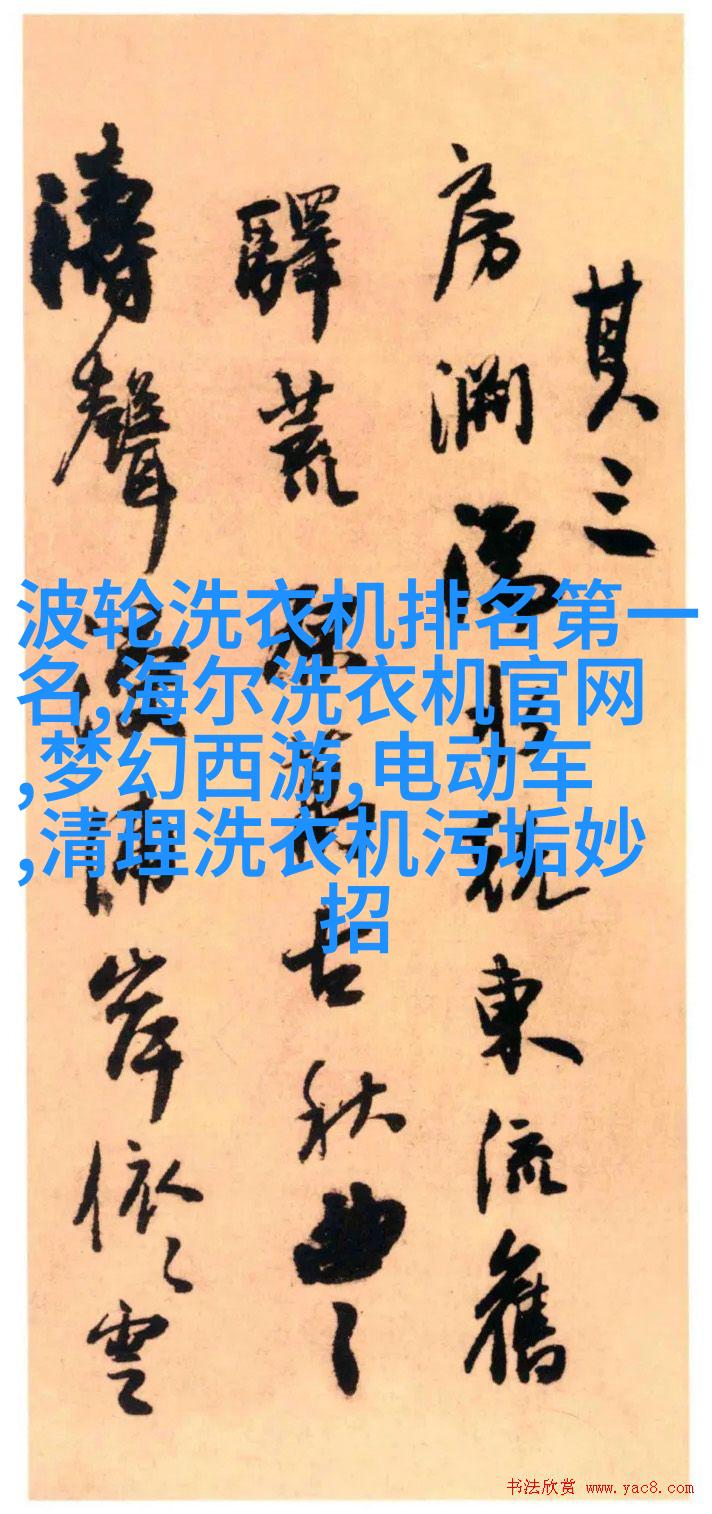 其三
房東流舊
驛荒萬古秋曲〻
濤聲岸依〻雲
波轮洗衣机排名第一
名,海尔洗衣机官网
,梦幻西游,电动车
,清理洗衣机污垢妙
招
书法欣赏 www.yac8.com